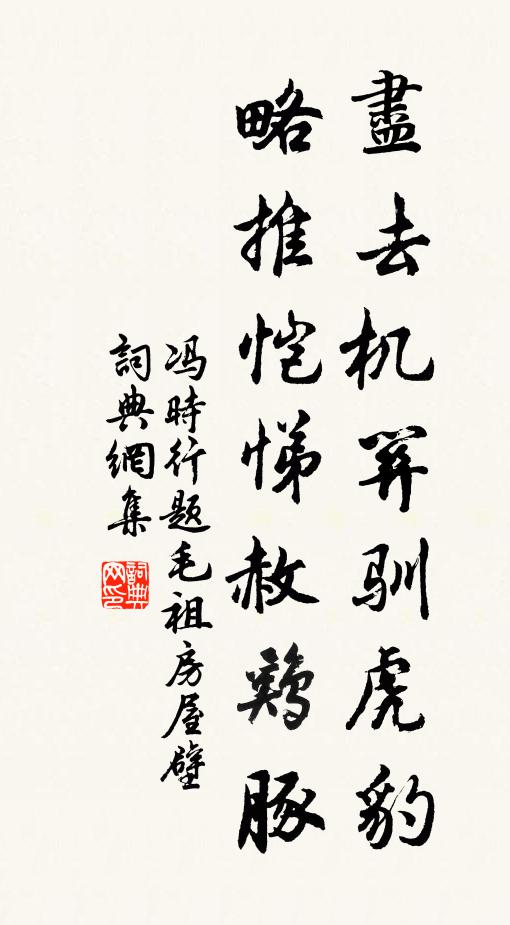 盡去机穽馴虎豹
略推恺悌赦鷄豚
冯時行題毛祖房屋壁
詞典網集
詞典网印